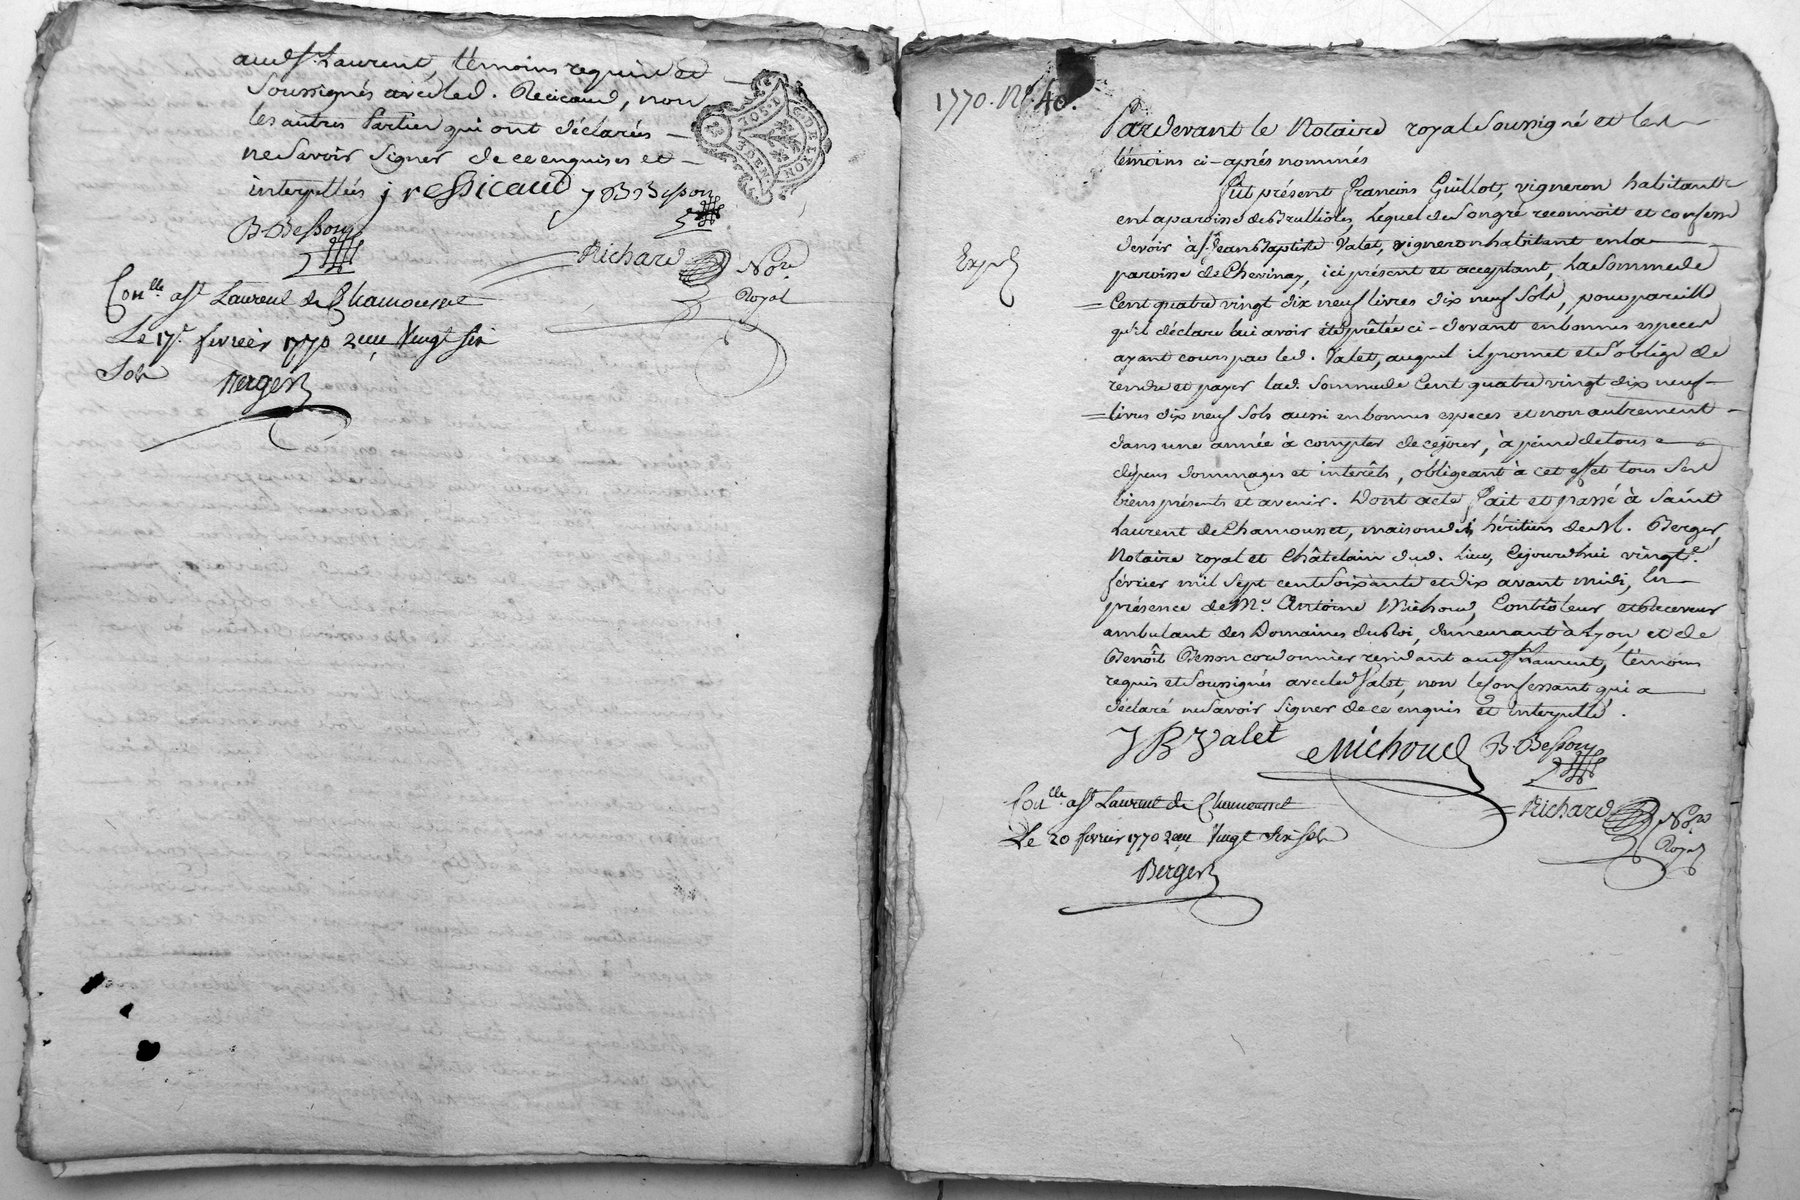 aud. St. Laurent, témoins requis et
Soussignés avec led. Recicaud, non
les autres Parties qui ont déclarées
ne Savoir Signer de ce enquises et
interpellées ;
J B Besson
B Besson
Richard Nore
Royal
Conlle. a St. Laurent de Chamousset
Le 17e. fevrier 1770 Reçu Vingt six
Sols
Berger
1770. No. 40.
Expd
Pardevant le Notaire royal Soussigné et les
témoins ci-après nommés
Fut présent François Guillot, vigneron habitant
en la paroisse de Brullioles, lequel de Son gré reconnoit et confesse
devoir à Sr. Jean Baptiste Valet, vigneron habitant en la
paroisse de Chevinay, ici présent et acceptant, La Somme de
Cent quatre vingt dix neuf livres dix neuf Sols, pour pareille
qu'il déclare lui avoir été prêtée ci-devant en bonnes especes
ayant cours par led. Valet, auquel il promet et S'oblige de
rendre et payer lad. Somme de Cent quatre vingt dix neuf
livres dix neuf Sols aussi en bonnes especes et non autrement
dans une année à compter de ce jour, à peine de tous
dépens dommages et interêts, obligeant à cet effet tous Ses
biens présents et avenir. Dont acte Fait et passé à Saint
Laurent de Chamousset, maison des héritiers de M. Berger,
Notaire royal et Châtelain dud. Lieu, Cejourdhui vingte.
février mil Sept cent Soixante et dix avant midi, En
présence de Me. Antoine Michoud, Contrôleur et Receveur
ambulant des Domaines du Roi, demeurant à Lyon et de
Benoît Besson cordonnier residant aud. St. Laurent, témoins
requis et Soussignés avec led. Valet, non le Confessant qui a
déclaré ne Savoir Signer de ce enquis et interpellé.
J B Valet Michoud B Besson
Richard Nore
Royal
Conlle. a St. Laurent de Chamousset
Le 20 fevrier 1770 Reçu Vingt Six Sols
Berger